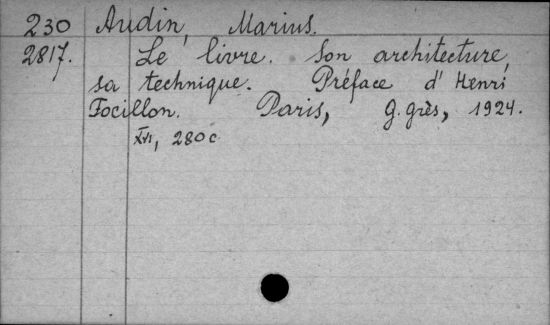 230 Audin, Marius.
2817. Le livre. Son architecture,
sa technique. Préface d' Henri
Focillon. Paris, G. grès, 1924.
XVI, 280 c